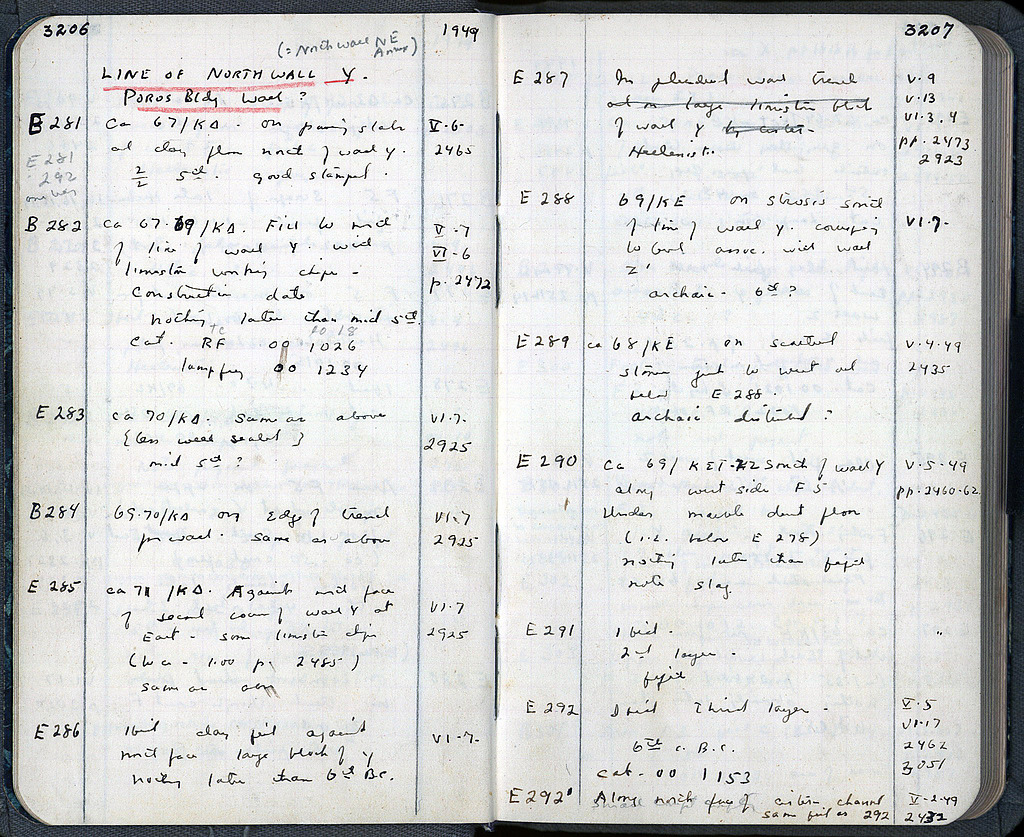 3206
1949
(= North wall NE Annex)
LINE OF NORTH WALL Y.
POROS Bldg Wall?
E 281 ca 67/ΚΔ. on paving slabs V-6-
at clay floor north of wall Y. 2465
E 281
292
2/2 5th. good stamped.
B 282 ca 67-69/ΚΔ. Fill to north V-7
of line of wall Y with VI-6
limestone working chips - p. 2472
Construction date
nothing later than mid 5th.
Cat. RF 00 1026
lamp frg 00 1234
E 283 ca 70/ΚΔ. Same as above VI-7.
{less well sealed} 2925
mid 5th?
B 284 69-70/ΚΔ on edge of trench VI-7
for wall. Same as above 2925
E 285 ca 71/ΚΔ. Against north face
of second course of wall Y at VI-7
East - some limestone chips 2925
(to ca -1.00 p. 2485)
same as
E 286 Ibid clay fill against VI-7-
north face large block of Y
nothing later than 6th B.C.
3207
E 287 In plundered wall trench V-9
at on large limestone block V-13
of wall Y VI-3, 4
Hellenist. pp. 2473
2923
E 288 69/ΚΕ on stroses south
of line of wall Y. VI-7-
to level assoc. with wall
Z'
archaic - 6th?
E 289 ca 68/ΚΕ on scattered V-4-49
stones just to west and 2435
below E 288.
archaic disturbed?
E 290 ca 69/ south of wall Y V-5-49
along west side F 5 pp. 2460-62
Under marble dust floor
(i.e. below E 278)
nothing later than
note slag.
E 291 Ibid. "
2nd layer -
E 292 Ibid Third layer - V-5
VI-17
6th c. B.C. 2462
3051
cat. 00 1153
E 292' Along north face of cistern channel V-2-49
same fill as 292 2432